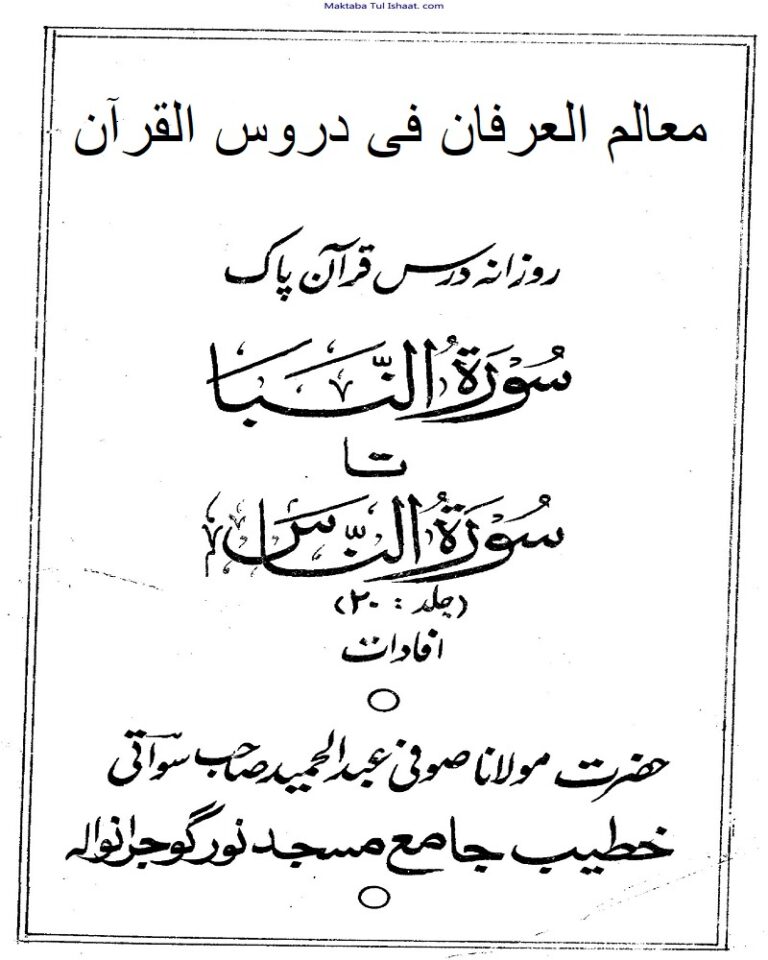 Maktaba Tul Ishaat. com
معالم العرفان فی دروس القرآن
روزانہ درس قرآن پاک
سُوْرَۃُ النَّبَا
تا
سُوْرَۃُ النَّاسِ
(جلد : ۲۰)
افادات
حضرت مولانا صوفی عبدالحمید صاحب سواتی
خطیب جامع مسجد نور گوجرانوالہ